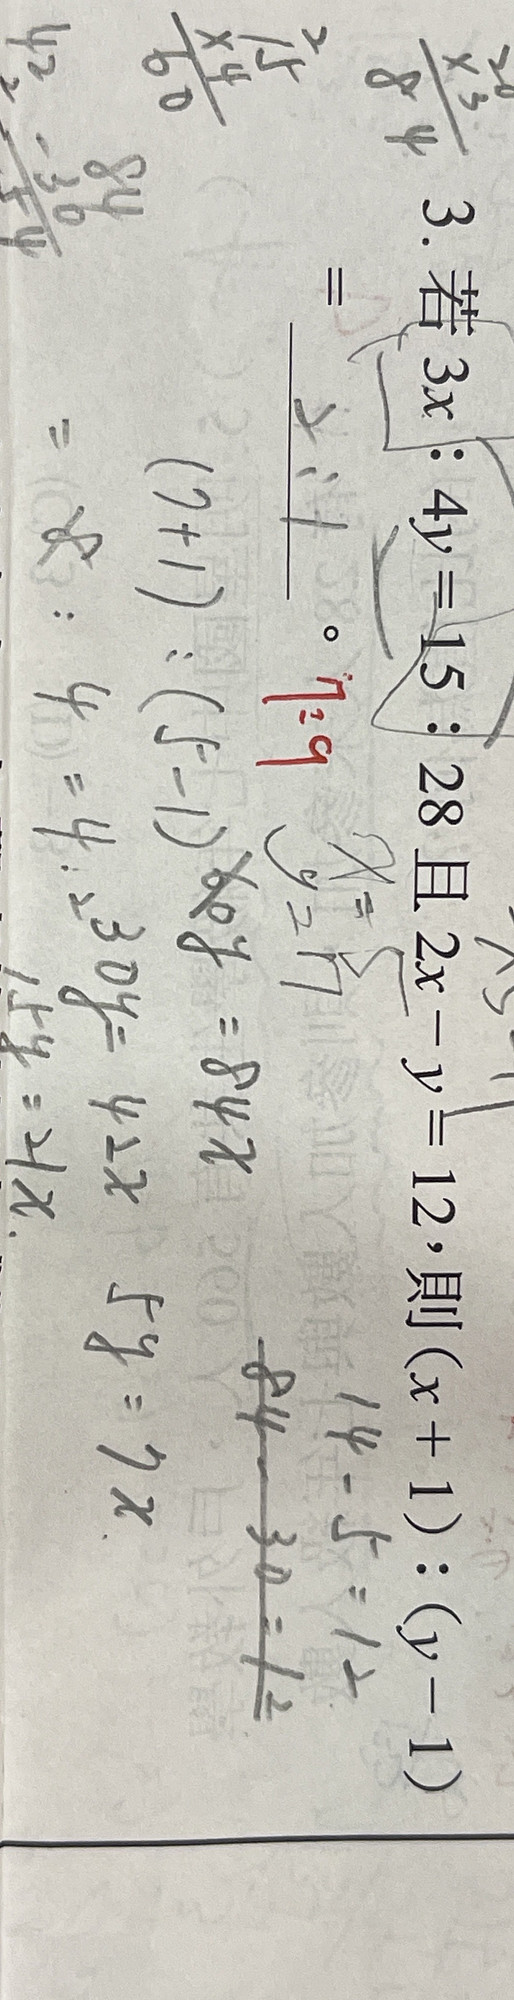 3. 若 3x：4y＝15：28 且 2x－y＝12，則 (x＋1)：(y－1)
＝ 2:1 。 7:9
x=5
y=7
14-5=12
84-30=12
60y=84x
(7+1):(5-1)
30y=42x
5y=7x
=8:4=4:2
15y=21x
28
x3
84
15
x4
60
84
-30
54